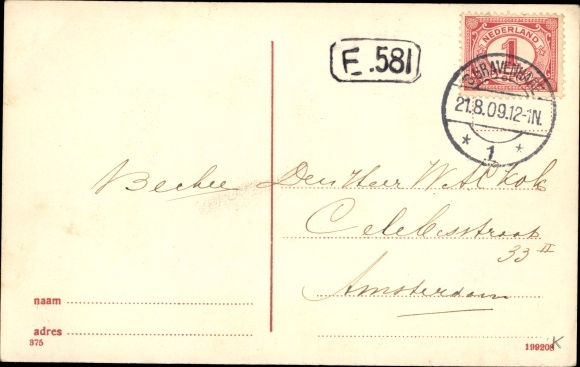 F.581
NEDERLAND
1
'SGRAVENHAGE
21.8.09.12-1N.
* 1 *
Den Heer W.A. Kok
Celebesstraat
33 II
Amsterdam
naam
adres
375
199208
K